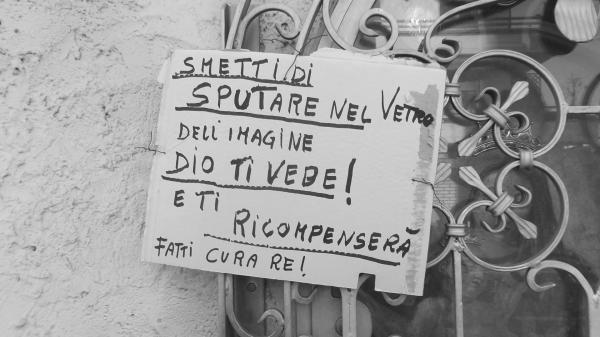 SMETTI DI
SPUTARE NEL VETRO
DELL IMAGINE
DIO TI VEDE!
E TI
RICOMPENSERÀ
FATTI CURARE!